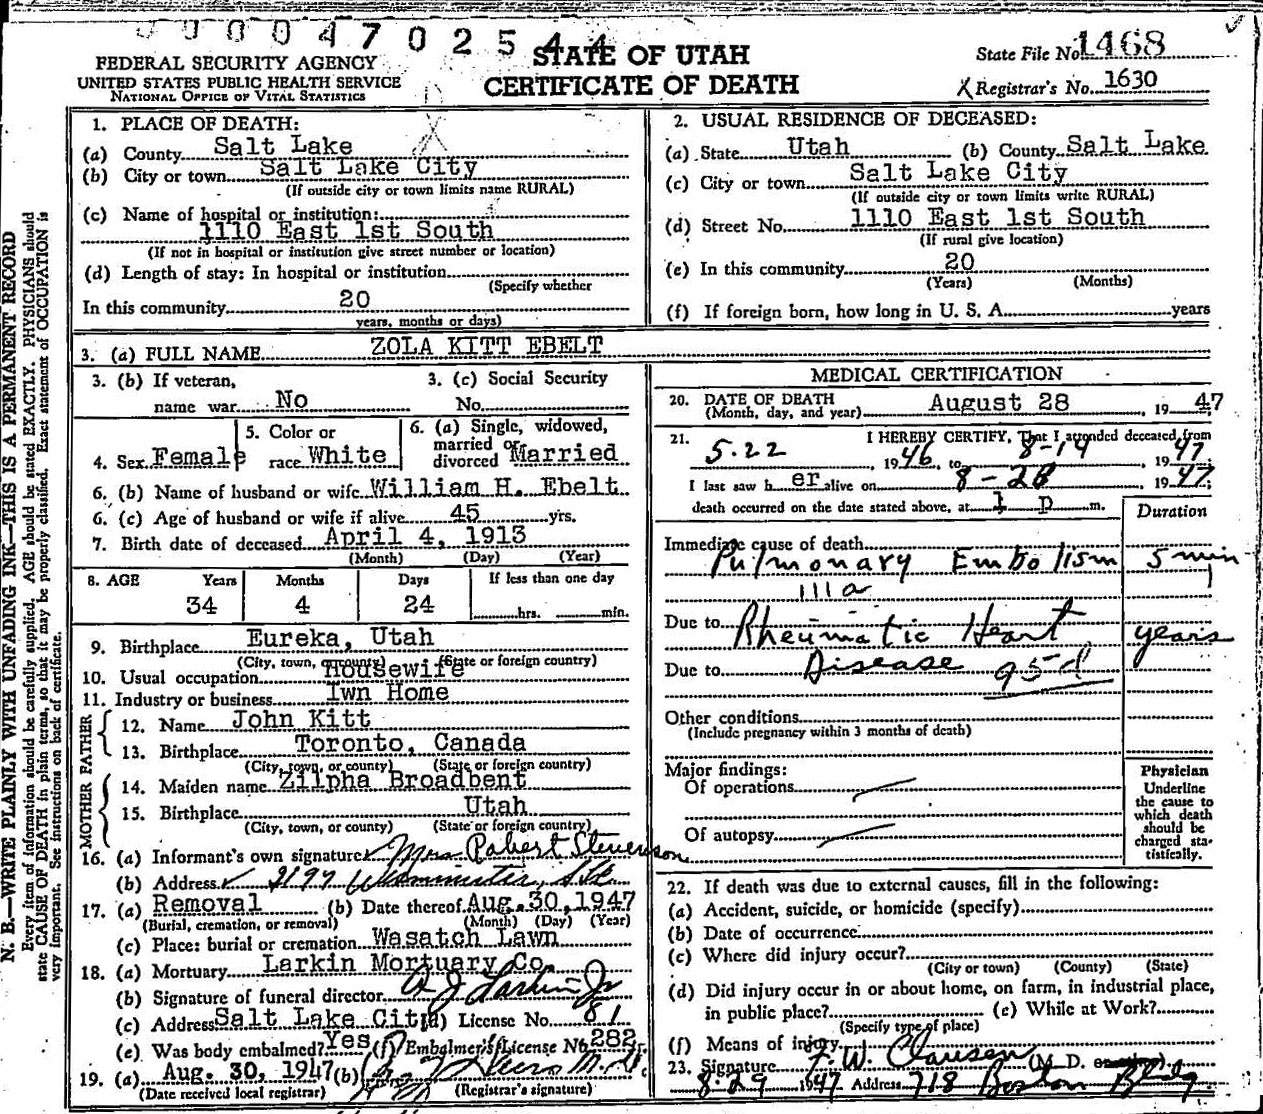 0000470254
STATE OF UTAH
CERTIFICATE OF DEATH
FEDERAL SECURITY AGENCY
UNITED STATES PUBLIC HEALTH SERVICE
NATIONAL OFFICE OF VITAL STATISTICS
State File No. 1468
X Registrar's No. 1630
1. PLACE OF DEATH:
(a) County Salt Lake
(b) City or town Salt Lake City
(If outside city or town limits name RURAL)
(c) Name of hospital or institution:
1110 East 1st South
(If not in hospital or institution give street number or location)
(d) Length of stay: In hospital or institution
(Specify whether
In this community 20
years, months or days)
2. USUAL RESIDENCE OF DECEASED:
(a) State Utah (b) County Salt Lake
(c) City or town Salt Lake City
(If outside city or town limits write RURAL)
(d) Street No. 1110 East 1st South
(If rural give location)
(e) In this community 20
(Years) (Months)
(f) If foreign born, how long in U. S. A. years
3. (a) FULL NAME ZOLA KITT EBELT
3. (b) If veteran, name war No
3. (c) Social Security No.
4. Sex Female
5. Color or race White
6. (a) Single, widowed, married or divorced Married
6. (b) Name of husband or wife William H. Ebelt
6. (c) Age of husband or wife if alive 45 yrs.
7. Birth date of deceased April 4, 1913
(Month) (Day) (Year)
8. AGE Years Months Days If less than one day
34 4 24 hrs. min.
9. Birthplace Eureka, Utah
(City, town, or county) (State or foreign country)
10. Usual occupation Housewife
11. Industry or business Iwn Home
FATHER
12. Name John Kitt
13. Birthplace Toronto, Canada
(City, town, or county) (State or foreign country)
MOTHER
14. Maiden name Zilpha Broadbent
15. Birthplace Utah
(City, town, or county) (State or foreign country)
16. (a) Informant's own signature Mrs Robert Stevenson
(b) Address
17. (a) Removal (b) Date thereof Aug. 30, 1947
(Burial, cremation, or removal) (Month) (Day) (Year)
(c) Place: burial or cremation Wasatch Lawn
18. (a) Mortuary Larkin Mortuary Co
(b) Signature of funeral director A J Larkin Jr
(c) Address Salt Lake City (d) License No. 81
(e) Was body embalmed? Yes (f) Embalmer's License No. 282
19. (a) Aug. 30, 1947 (b)
(Date received local registrar) (Registrar's signature)
MEDICAL CERTIFICATION
20. DATE OF DEATH
(Month, day, and year) August 28, 1947
21. I HEREBY CERTIFY, That I attended deceased from
5.22, 1946, to 8-14 1947
I last saw h er alive on 8-28 1947;
death occurred on the date stated above, at 1 p m.
Duration
Immediate cause of death
Pulmonary Embolism 5 min
111a
Due to Rheumatic Heart years
Due to Disease 95d
Other conditions
(Include pregnancy within 3 months of death)
Major findings:
Of operations
Of autopsy
Physician
Underline
the cause to
which death
should be
charged sta-
tistically.
22. If death was due to external causes, fill in the following:
(a) Accident, suicide, or homicide (specify)
(b) Date of occurrence
(c) Where did injury occur?
(City or town) (County) (State)
(d) Did injury occur in or about home, on farm, in industrial place,
in public place? (e) While at Work?
(Specify type of place)
(f) Means of injury
23. Signature F. W. Clausen (M. D. or other)
8-29 1947 Address 718 Boston Bldg.
N. B.—WRITE PLAINLY WITH UNFADING INK—THIS IS A PERMANENT RECORD
Every item of information should be carefully supplied. AGE should be stated EXACTLY. PHYSICIANS should
state CAUSE OF DEATH in plain terms, so that it may be properly classified. Exact statement of OCCUPATION is
very important. See instructions on back of certificate.